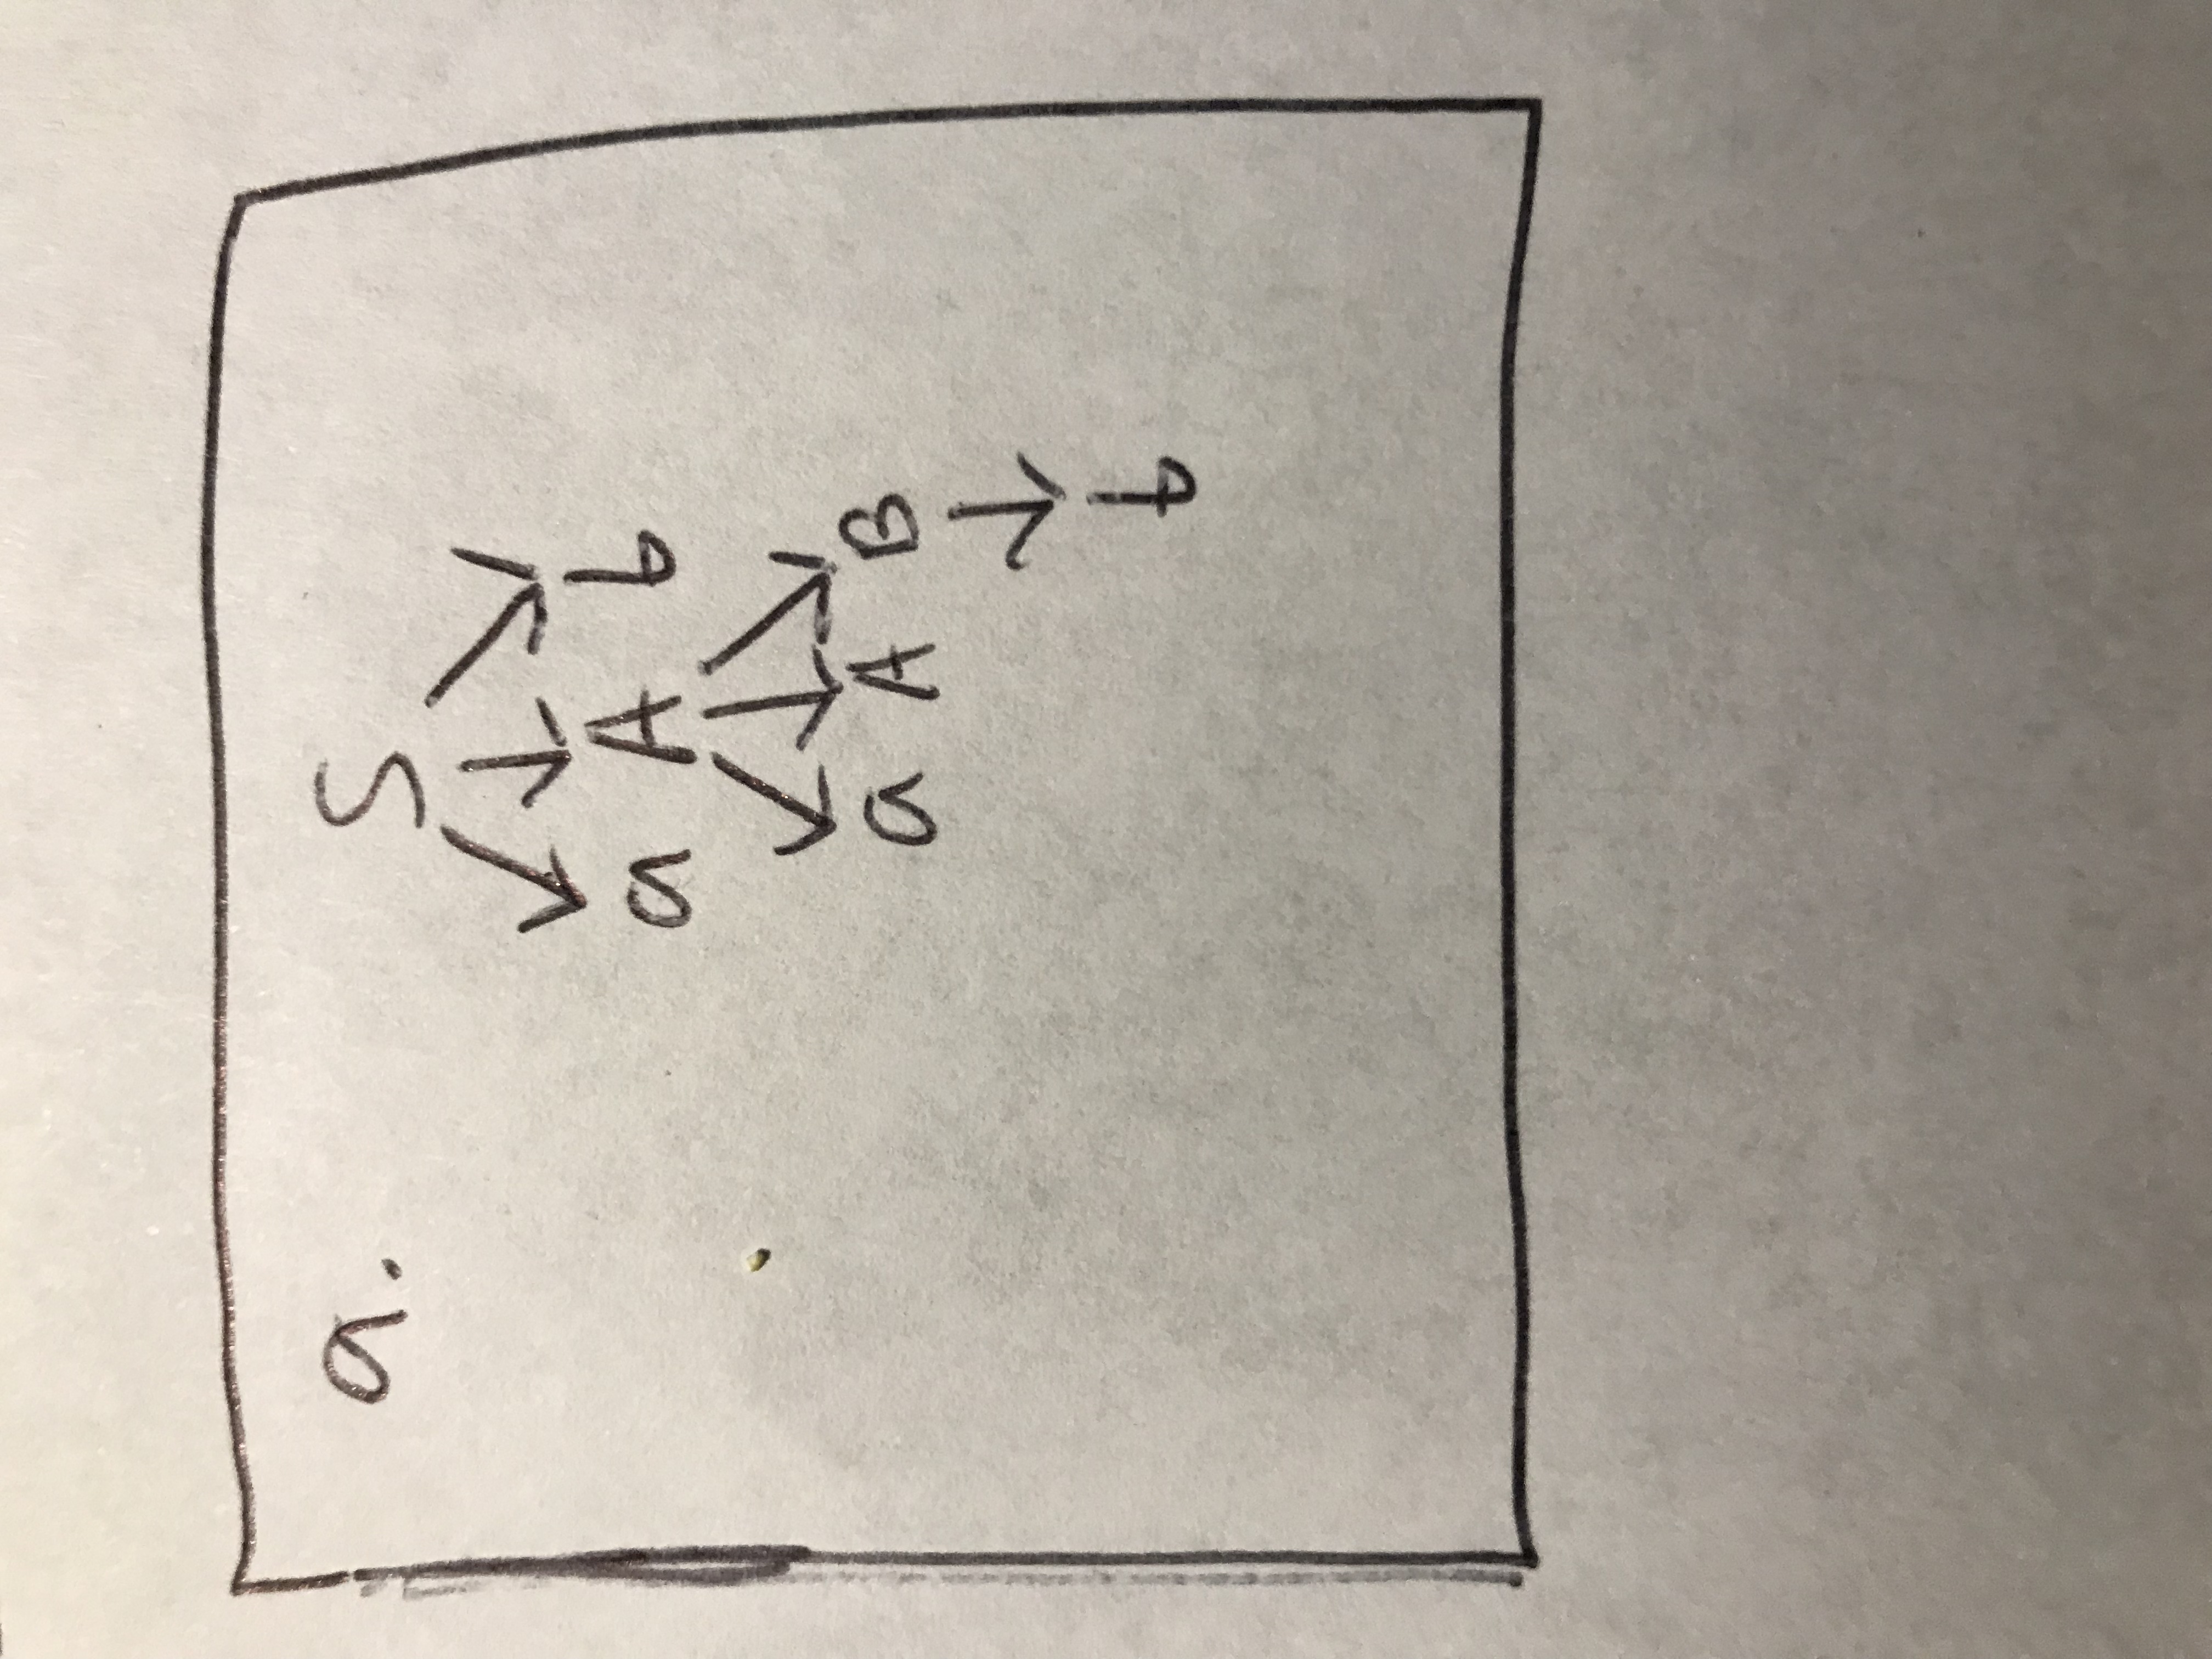 a. S
a A b
a A B
b